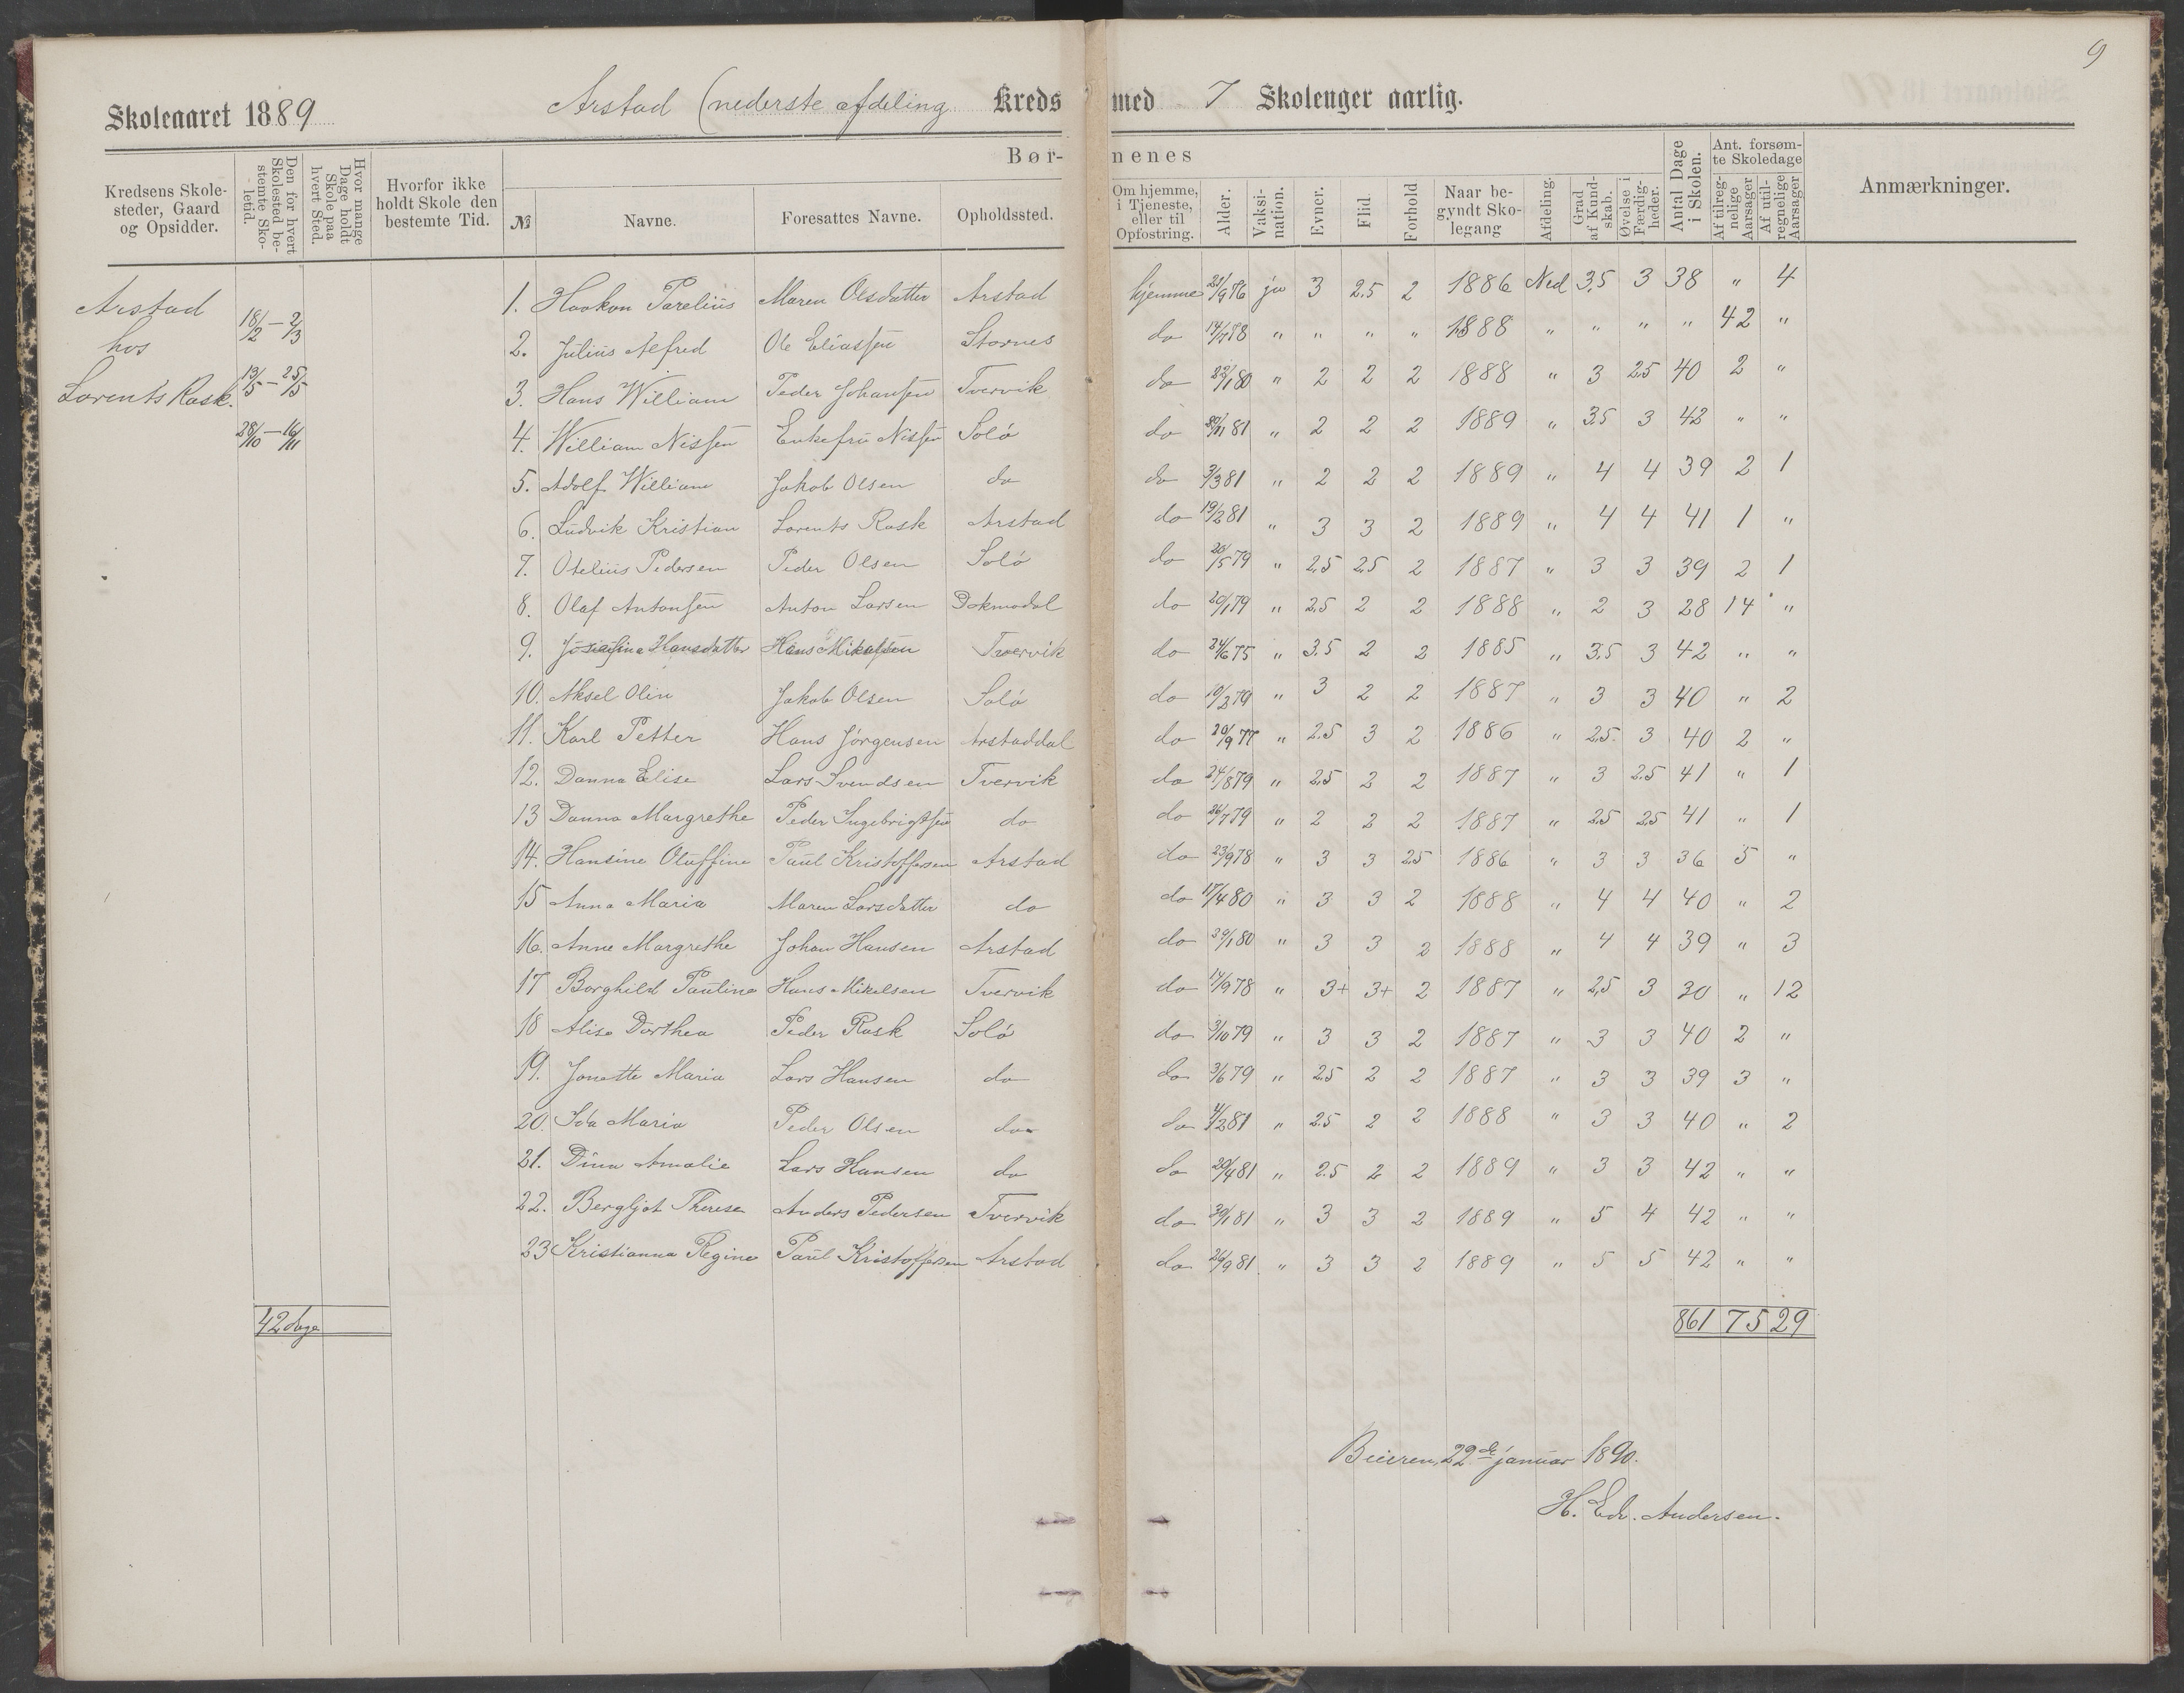 9
Skoleaaret 1889 Arstad (nederste afdeling Kreds med 7 Skoleuger aarlig.
Børnenes
Kredsens Skolesteder, Gaard og Opsidder. Den for hvert Skolested bestemte Skoletid. Hvor mange Dage holdt Skole paa hvert Sted. Hvorfor ikke holdt Skole den bestemte Tid. № Navne. Foresattes Navne. Opholdssted. Om hjemme, i Tjeneste, eller til Opfostring. Alder. Vaksination. Evner. Flid. Forhold. Naar begyndt Skolegang Afdeling. Grad af Kundskab. Øvelse i Færdigheder. Antal Dage i Skolen. Ant. forsømte Skoledage Af tilregnelige Aarsager Af utilregnelige Aarsager Anmærkninger.
Arstad
hos
Lorents Rask.
18/2 – 2/3
13/5 – 25/5
28/10 – 16/11
1. Haakon Parelius Maren Olsdatter Arstad hjemme 21/9 76 ja 3 2.5 2 1886 Ned 3,5 3 38 " 4
2. Julius Alfred Ole Eliassen Stornes do " " " " 1888 " " " " 42 "
3. Hans William Peder Johansen Tvervik do 22/1 80 " 2 2 2 1888 " 3 2.5 40 2 "
4. William Nissen Enkefru Nissen Solø do 81 " 2 2 2 1889 " 3.5 3 42 " "
5. Adolf William Jakob Olsen do do 3/3 81 " 2 2 2 1889 " 4 4 39 2 1
6. Ludvik Kristian Lorents Rask Arstad do 19/2 81 " 3 3 2 1889 " 4 4 41 1 "
7. Otelius Pedersen Peder Olsen Solø do 20/5 79 " 2,5 2,5 2 1887 " 3 3 39 2 1
8. Olaf Antonsen Anton Larsen Dokmodal do 20/1 79 " 2,5 2 2 1888 " 2 3 28 14 "
9. Josefine Hansdatter Hans Mikelsen Tvervik do 24/6 75 " 3.5 2 2 1885 " 3.5 3 42 " "
10. Aksel Olin Jakob Olsen Solø do 19/2 79 " 3 2 2 1887 " 3 3 40 " 2
11. Karl Petter Hans Jørgensen Arstaddal do 20/9 77 " 2.5 3 2 1886 " 2.5. 3 40 2 "
12. Danna Elise Lars Svendsen Tvervik do 24/8 79 " 2.5 2 2 1887 " 3 2.5 41 " 1
13 Danna Margrethe Peder Ingebrigtsen do do 26/7 79 " 2 2 2 1887 " 2.5 2.5 41 " 1
14. Hansine Oluffine Paul Kristoffersen Arstad do 23/9 78 " 3 3 2.5 1886 " 3 3 36 5 "
15 Anna Maria Maren Larsdatter do do 17/4 80 " 3 3 2 1888 " 4 4 40 " 2
16. Anne Margrethe Johan Hansen Arstad do 30/1 80 " 3 3 2 1888 " 4 4 39 " 3
17 Borghild Pauline Hans Mikelsen Tvervik do 14/9 78 " 3+ 3+ 2 1887 " 2,5 3 30 " 12
18 Alise Dorthea Peder Rask Solø do 3/10 79 " 3 3 2 1887 " 3 3 40 2 "
19. Jonette Maria Lars Hansen do do 3/6 79 " 2.5 2 2 1887 " 3 3 39 3 "
20. Ida Maria Peder Olsen do do 4/2 81 " 2.5 2 2 1888 " 3 3 40 " 2
21. Dina Amalie Lars Hansen do do 20/4 81 " 2.5 2 2 1889 " 3 3 42 " "
22. Bergljot Therese Anders Pedersen Tvervik do 30/1 81 " 3 3 2 1889 " 5 4 42 " "
23 Kristianna Regine Paul Kristoffersen Arstad do 26/9 81 " 3 3 2 1889 " 5 5 42 " "
42 dage 861 75 29
Beieren, 22de januar 1890.
H. Edv. Andersen.